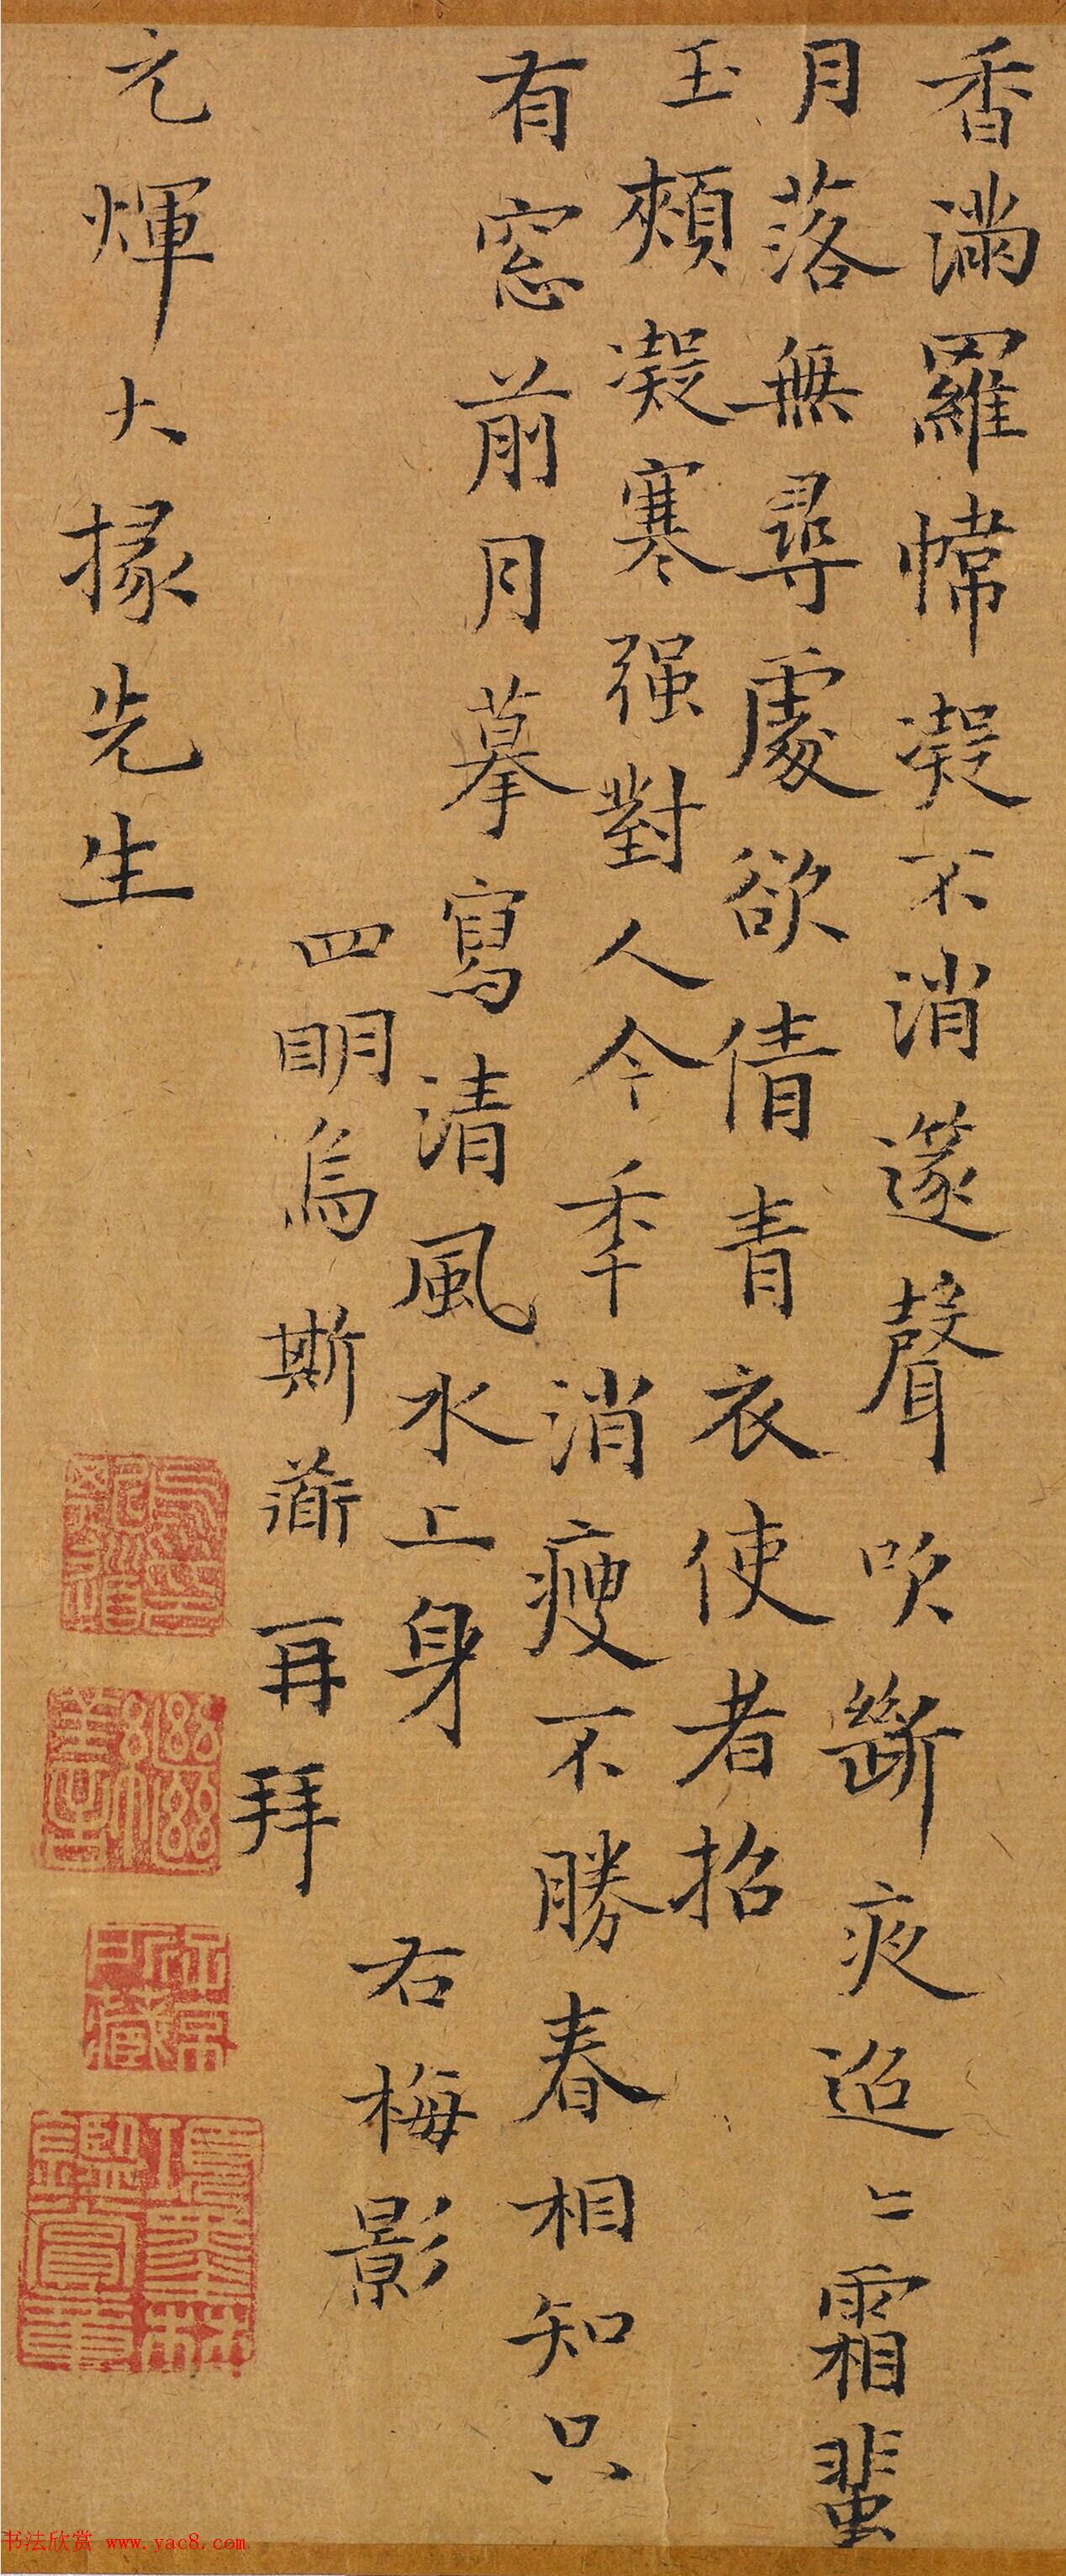 香滿羅幃凝不消篴聲吹斷夜迢〻霜蜚
月落無尋處欲倩青衣使者招
玉頰凝寒强對人今季消瘦不勝春相知只
有窓前月摹寫清風水上身 右梅影
四明烏斯衜再拜
元煇大掾先生
項墨林鑑賞章
书法欣赏 www.yac8.com